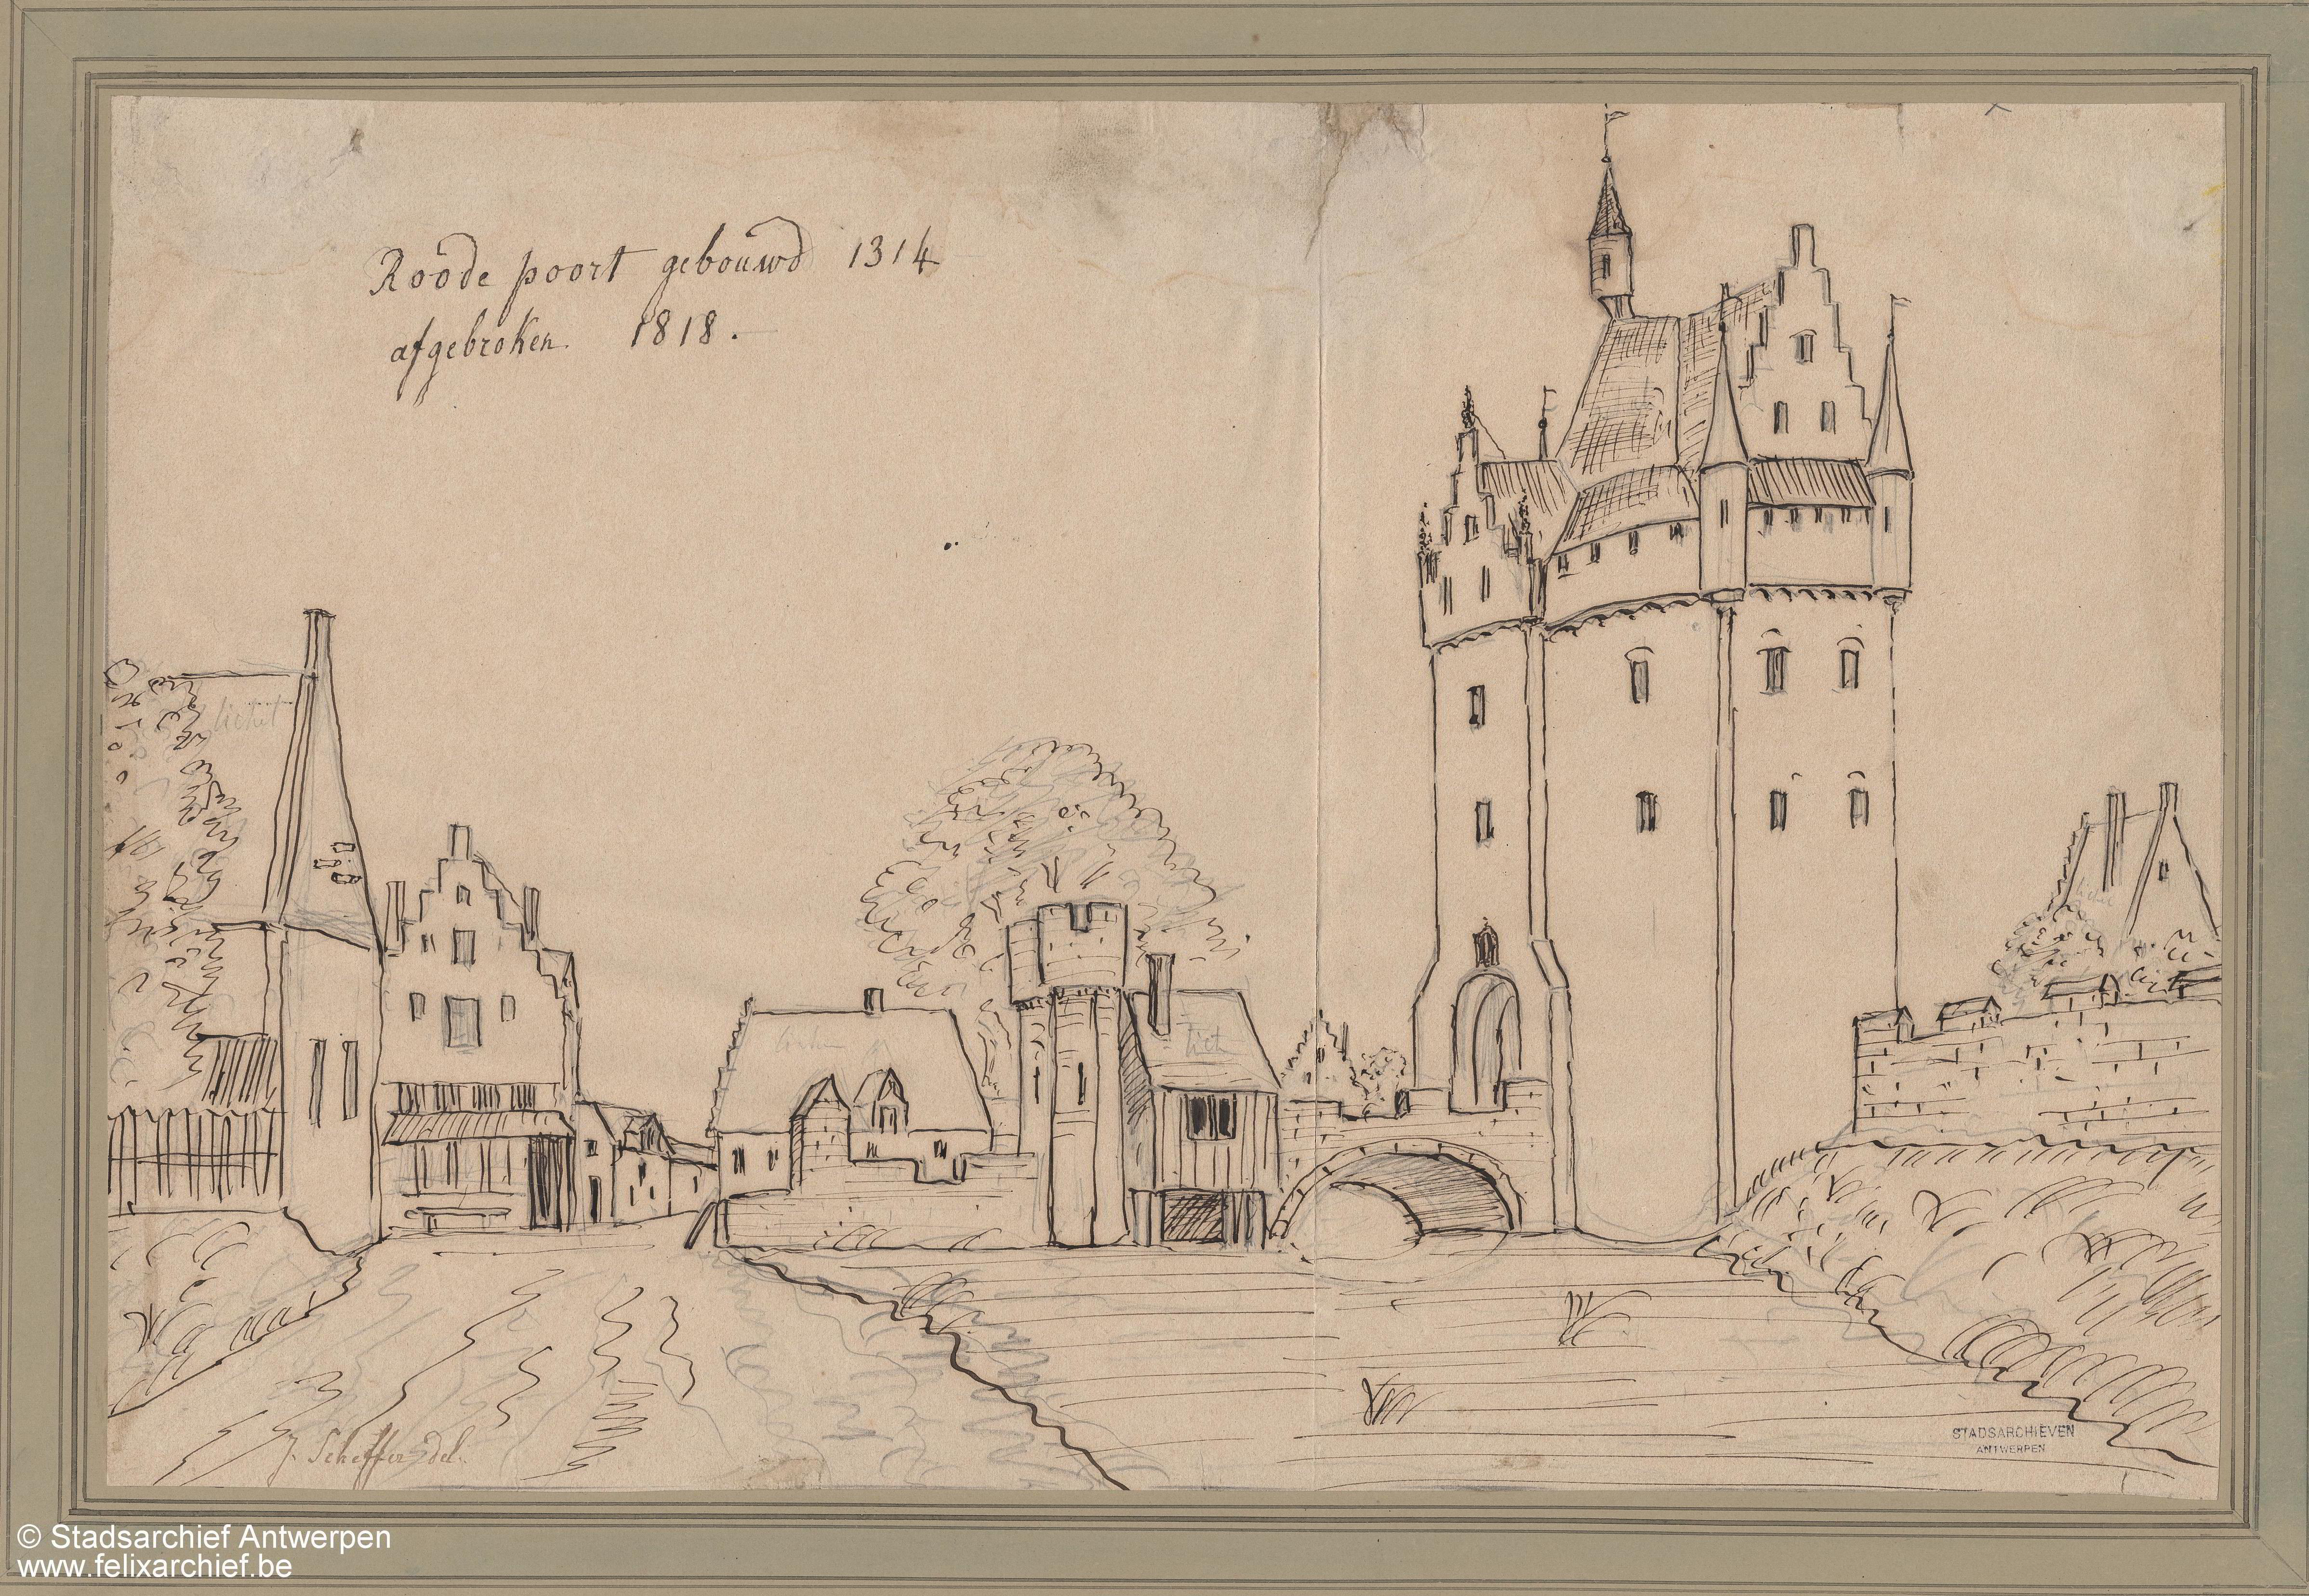 Roode poort gebouwd 1314
afgebroken. 1818.
licht
J. Scheffer del.
STADSARCHIEVEN
ANTWERPEN
© Stadsarchief Antwerpen
www.felixarchief.be